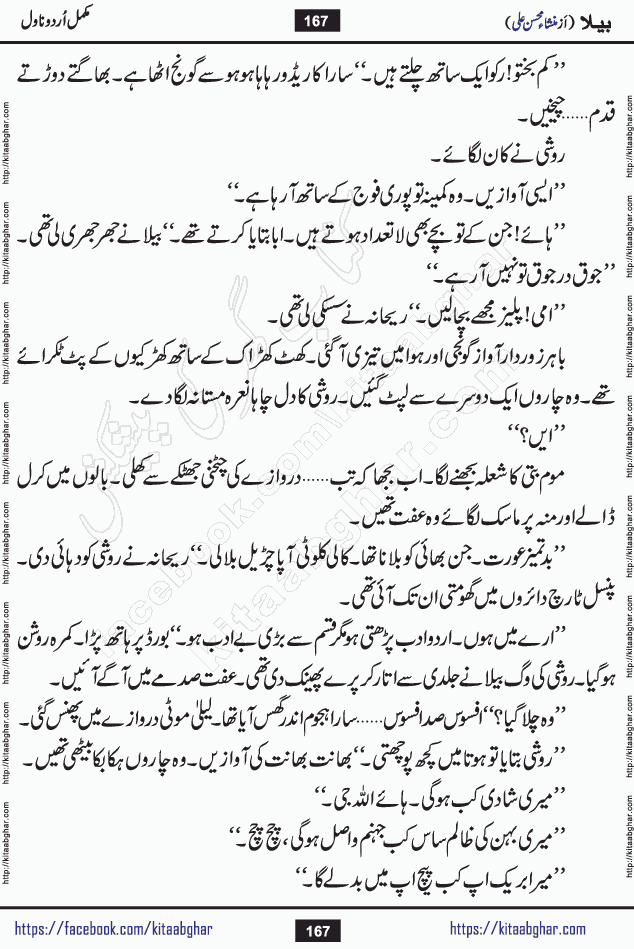 بیلا (از منشاء محسن علی) 167 مکمل اُردو ناول
’’کم بختو! رکو ایک ساتھ چلتے ہیں۔‘‘ سارا کاریڈور ہاہا ہوہو سے گونج اٹھا ہے۔ بھاگتے دوڑتے
قدم......چیخیں۔
روشی نے کان لگائے۔
’’ایسی آوازیں۔ وہ کمینہ تو پوری فوج کے ساتھ آرہا ہے۔‘‘
’’ہائے! جن کے تو بچے بھی لاتعداد ہوتے ہیں۔ ابا بتایا کرتے تھے۔‘‘ بیلا نے جھرجھری لی تھی۔
’’جوق در جوق تو نہیں آرہے۔‘‘
’’امی! پلیز مجھے بچالیں۔‘‘ ریحانہ نے سسکی لی تھی۔
باہر زوردار آواز گونجی اور ہوا میں تیزی آگئی۔ کھٹ کھڑاک کے ساتھ کھڑکیوں کے پٹ ٹکرائے
تھے۔ وہ چاروں ایک دوسرے سے لپٹ گئیں۔ روشی کا دل چاہا نعرہ مستانہ لگادے۔
’’ایں؟‘‘
موم بتی کا شعلہ بجھنے لگا۔ اب بجھا کہ تب......دروازے کی چٹخنی جھٹکے سے کھلی۔ بالوں میں کرل
ڈالے اور منہ پر ماسک لگائے وہ عفت تھیں۔
’’بدتمیز عورت۔ جن بھائی کو بلانا تھا۔ کالی کلوٹی آپا چڑیل بلالی۔‘‘ ریحانہ نے روشی کو دہائی دی۔
پنسل ٹارچ دائروں میں گھومتی ان تک آئی تھی۔
’’ارے میں ہوں۔ اردو ادب پڑھتی ہو مگر قسم سے بڑی بے ادب ہو۔‘‘ بورڈ پر ہاتھ پڑا۔ کمرہ روشن
ہوگیا۔ روشی کی وگ بیلا نے جلدی سے اتار کر پرے پھینک دی تھی۔ عفت صدمے میں آگے آئیں۔
’’وہ چلا گیا؟‘‘ افسوس صد افسوس......سارا ہجوم اندر گھس آیا تھا۔ لیلیٰ موٹی دروازے میں پھنس گئی۔
’’روشی بتایا تو ہوتا میں کچھ پوچھتی۔‘‘ بھانت بھانت کی آوازیں۔ وہ چاروں ہکا بکا بیٹھی تھیں۔
’’میری شادی کب ہوگی۔ ہائے اللہ جی۔‘‘
’’میری بہن کی ظالم ساس کب جہنم واصل ہوگی، چچ چچ۔‘‘
’’میرا بریک اپ کب پیچ اپ میں بدلے گا۔‘‘
https://facebook.com/kitaabghar 167 https://kitaabghar.com
http://kitaabghar.com
کتاب گھر کی پیشکش
facebook.com/kitaabghar
kitaabghar.com